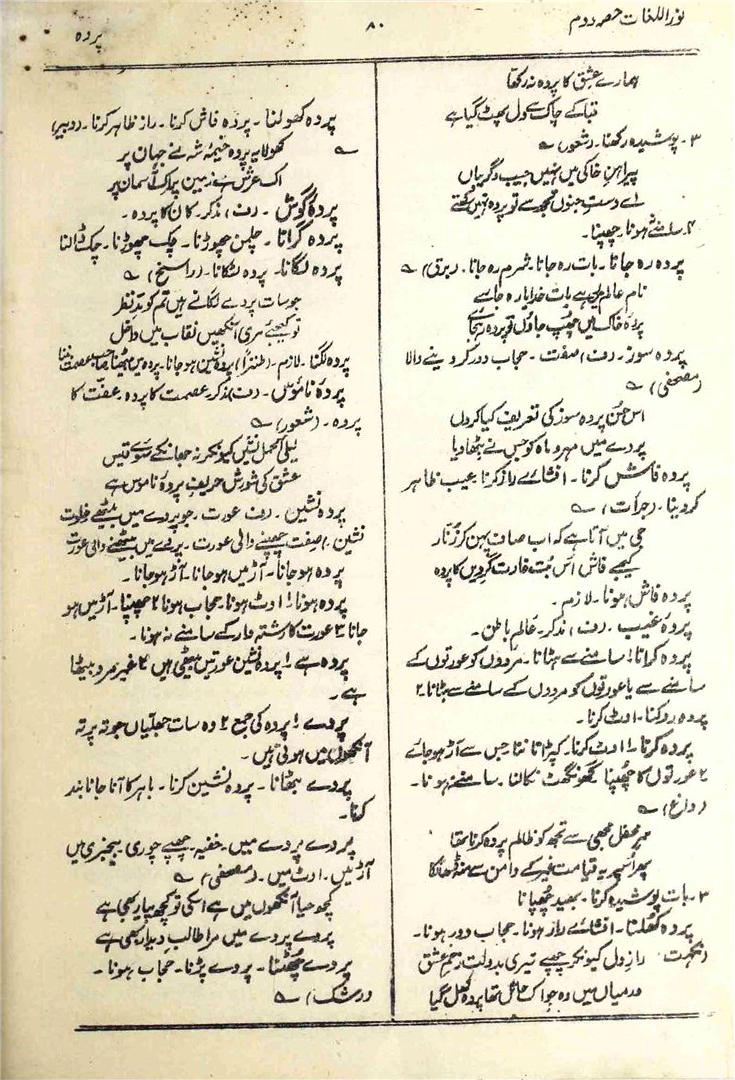 نور اللغات حصہ دوم
۸۰
پردہ
ہمارے عشق کا پردہ نہ رکھا
قبا کے چاک سے دل پھٹ گیا ہے
۳۔ پوشیدہ رکھنا۔ (شعور) ؎
پیراہن خاکی میں نہیں جیب و گریباں
اے دستِ جنوں مجھ سے تو پردہ نہیں رکھتے
۴۔ سامنے ہونا۔ چھپنا۔
پردہ رہ جانا۔ بات رہ جانا۔ شرم رہ جانا۔ (برق) ؎
نام عالم میں ہے بات خدایا رہ جائے
پردۂ خاک میں چھپ جاؤں تو پردہ رہجائے
پردہ سوز۔ (ف) صفت۔ حجاب دور کر دینے والا
(مصحفی) ؎
اس حُسنِ پردہ سوز کی تعریف کیا کروں
پردے میں مہر و ماہ کو جس نے بٹھا دیا
پردہ فاش کرنا۔ افشائے راز کرنا۔ عیب ظاہر
کر دینا۔ (جرأت) ؎
جی میں آتا ہے کہ اب صاف پہن کر زنّار
کیجے فاش اُس بُت غارت گرِ دیں کا پردہ
پردہ فاش ہونا۔ لازم۔
پردۂ غیب۔ (ف) مذکر۔ عالمِ باطن۔
پردہ کرانا ۱ سامنے سے ہٹانا۔ مردوں کو عورتوں کے
سامنے سے یا عورتوں کو مردوں کے سامنے سے ہٹانا ۲
پردہ روکنا۔ اوٹ کرنا۔
پردہ کرنا۔ ۱ اوٹ کرنا۔ کپڑا تاننا جس سے آڑ ہو جائے
۲ عورتوں کا چُھپنا گھونگھٹ نکالنا۔ سامنے نہ ہونا۔
(داغ) ؎
میرِ محفل مجھی سے تجھ کو ظالم پردہ کرنا تھا
پھر اُسپر یہ قیامت غیر کے دامن سے منہ ڈھانکا
۳۔ بات پوشیدہ کرنا۔ بھید چُھپانا
پردہ کُھلنا۔ افشائے راز ہونا۔ حجاب دور ہونا۔
(نکہت) رازِ دل کیونکر چھپے تیری بدولت زخمِ عشق
درمیاں میں وہ جو اک حائل تھا پردہ کھل گیا
پردہ کھولنا۔ پردہ فاش کرنا۔ راز ظاہر کرنا۔ (دبیر)
؎ کھولا یہ پردہ خیمۂ شہ نے جہان پر
اک عرش ہے زمین پر اک آسمان پر
پردۂ گوش۔ (ف) مذکر۔ کان کا پردہ۔
پردہ گرانا۔ چلمن چھوڑنا۔ چِک چھوڑنا۔ چک ڈالنا
پردہ لگانا۔ پردہ لٹکانا۔ (راسخ) ؎
جو سات پردے لگانے ہیں تم کو مدِّ نظر
تو کیجئے مری آنکھیں نقاب میں داخل
پردہ لگنا۔ لازم۔ (طنزاً) پردہ نشین ہو جانا۔ پردہ میں بیٹھنا۔ صاحبِ عصمت بننا
پردۂ ناموس۔ (ف) مذکر۔ عصمت کا پردہ۔ عفّت کا
پردہ۔ (شعور) ؎
لیلی محمل نشیں کیونکر نہ جھانکے سوئے قیس
عشق کی شورش حریفِ پردۂ ناموس ہے
پردہ نشین۔ (ف) عورت۔ جو پردے میں بیٹھے خلوت
نشین۔ ۲ صفت چھپنے والی عورت۔ پردے میں بیٹھنے والی عورت
پردہ ہو جانا۔ آڑ میں ہو جانا۔ آڑ ہو جانا۔
پردہ ہونا ۱ اوٹ ہونا۔ حجاب ہونا ۲ چھپنا۔ آڑ میں ہو
جانا ۳ عورت کا رشتہ دار کے سامنے نہ ہونا۔
پردہ ہے ۱ پردہ نشین عورتیں بیٹھی ہیں ۲ غیر مرد بیٹھا
ہے۔
پردے ۱ پردہ کی جمع ۲ وہ سات جھلیاں جو تہ پر تہ
آنکھوں میں ہوتی ہیں۔
پردے بٹھانا۔ پردہ نشین کرنا۔ باہر کا آنا جانا بند
کرنا۔
پردے پردے میں۔ خفیہ۔ چھپے چوری۔ بیخبری میں
آڑ میں۔ اوٹ میں۔ (مصحفی) ؎
کچھ حیا آنکھوں میں ہے اسکی تو کچھ پیار بھی ہے
پردے پردے میں مرا طالبِ دیدار بھی ہے
پردے چھٹنا۔ پردے پڑنا۔ حجاب ہونا۔
(رشک) ؎